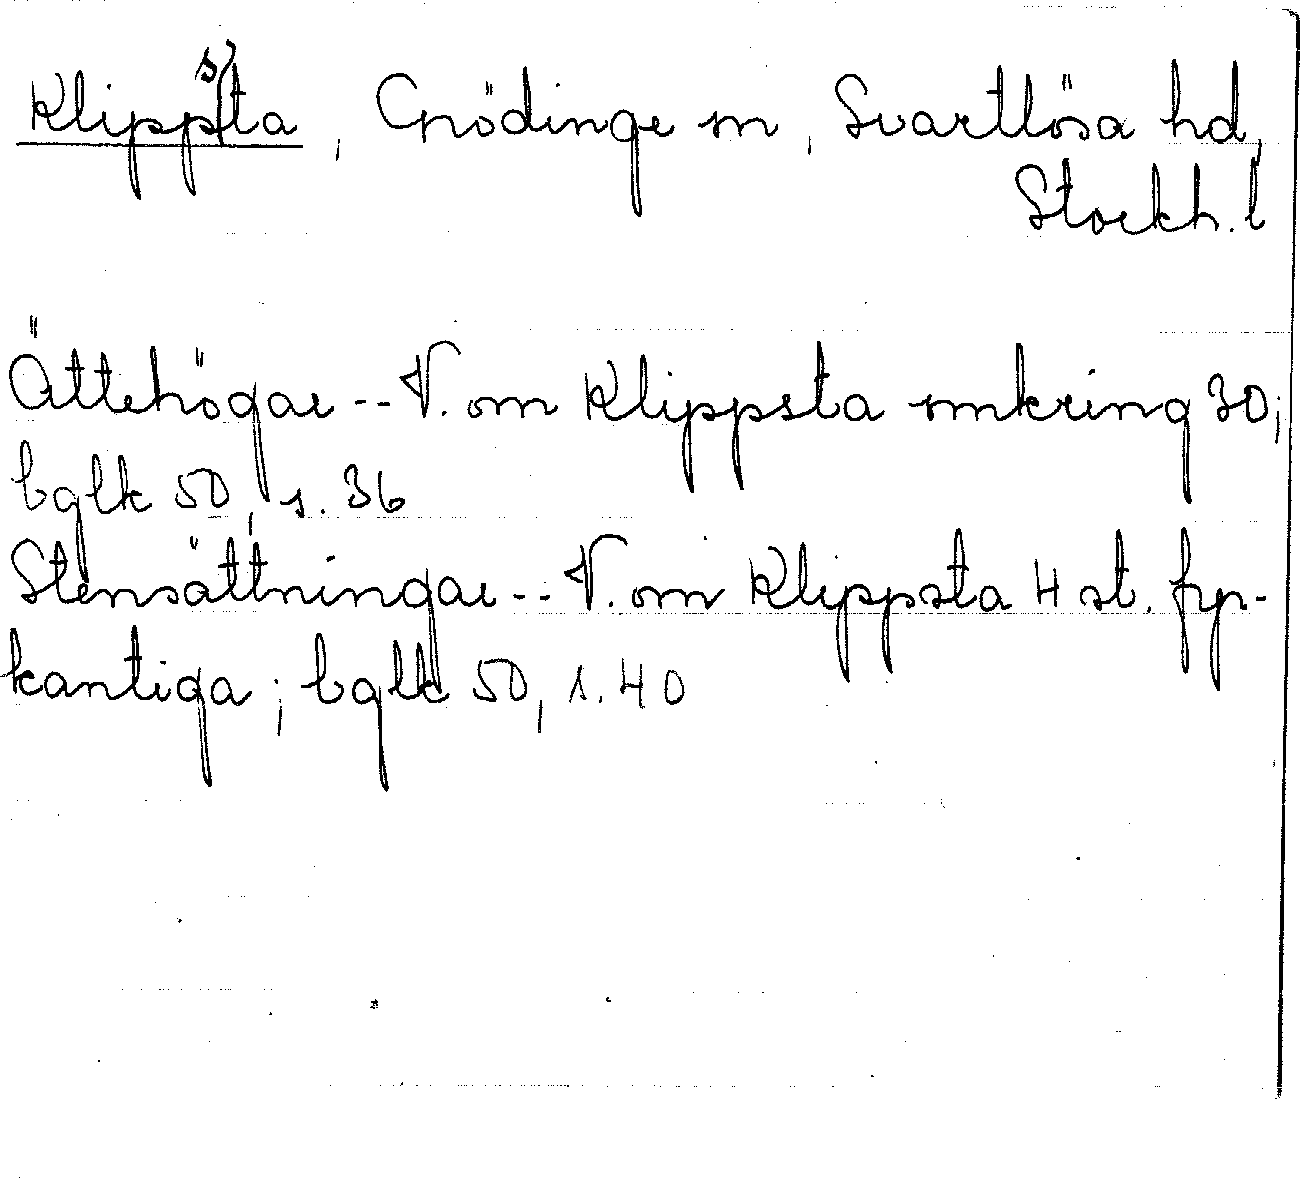 Klippsta, Grödinge sn, Svartlösa hd,
Stockh. l
Ättehögar -- V. om Klippsta omkring 30;
bglk 50, s. 36
Stensättningar -- V. om Klippsta 4 st. fyr-
kantiga; bglk 50, s. 40